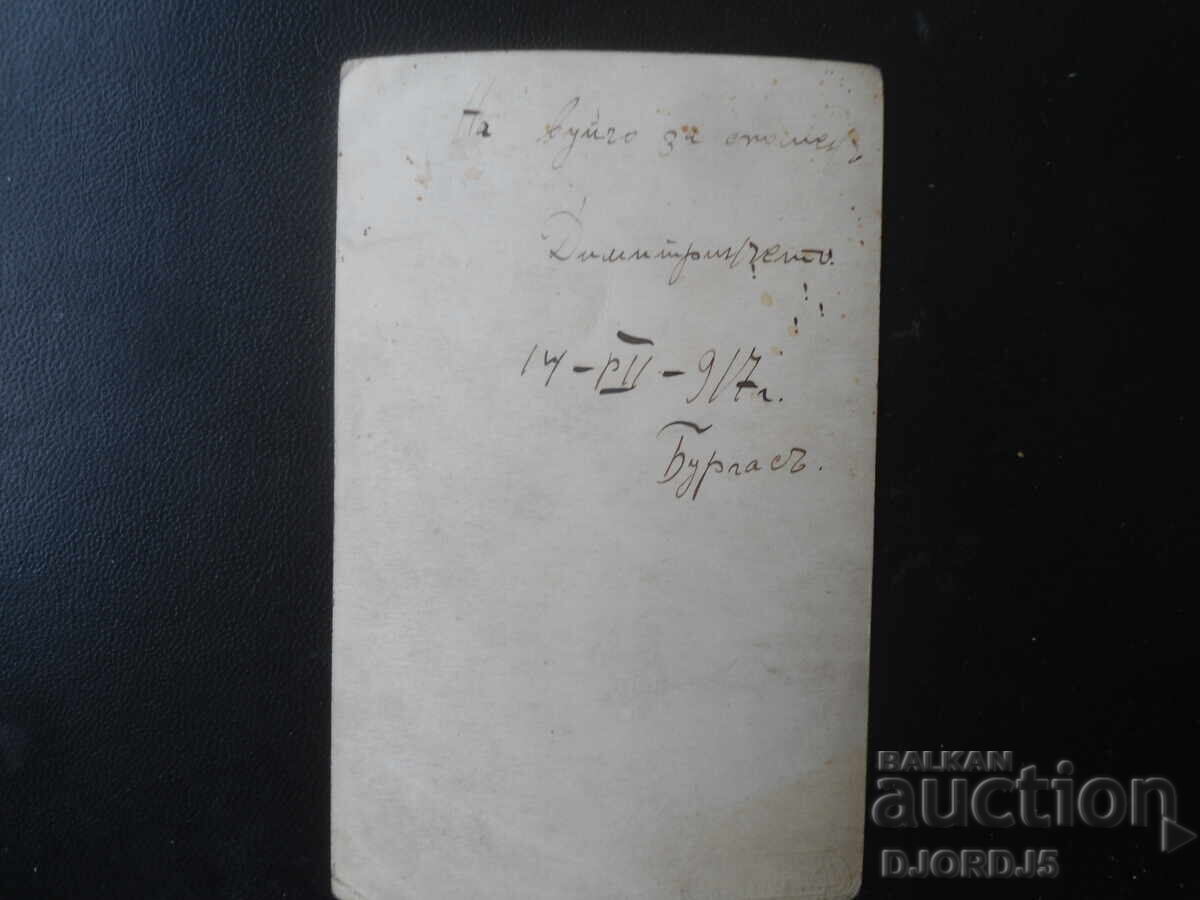 На вуйчо за споменъ
Димитринчето.
14-VII-917г.
Бургасъ.
BALKAN
auction
DJORDJ5